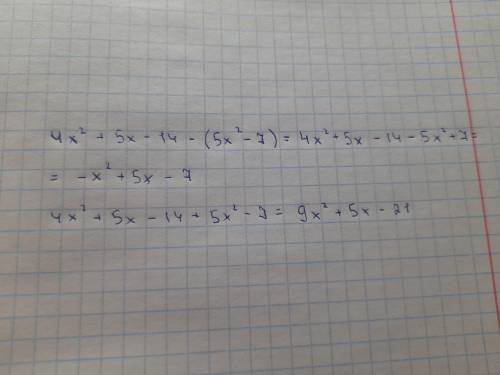 4x² + 5x - 14 - (5x² - 7) = 4x² + 5x - 14 - 5x² + 7 =
= -x² + 5x - 7
4x² + 5x - 14 + 5x² - 7 = 9x² + 5x - 21